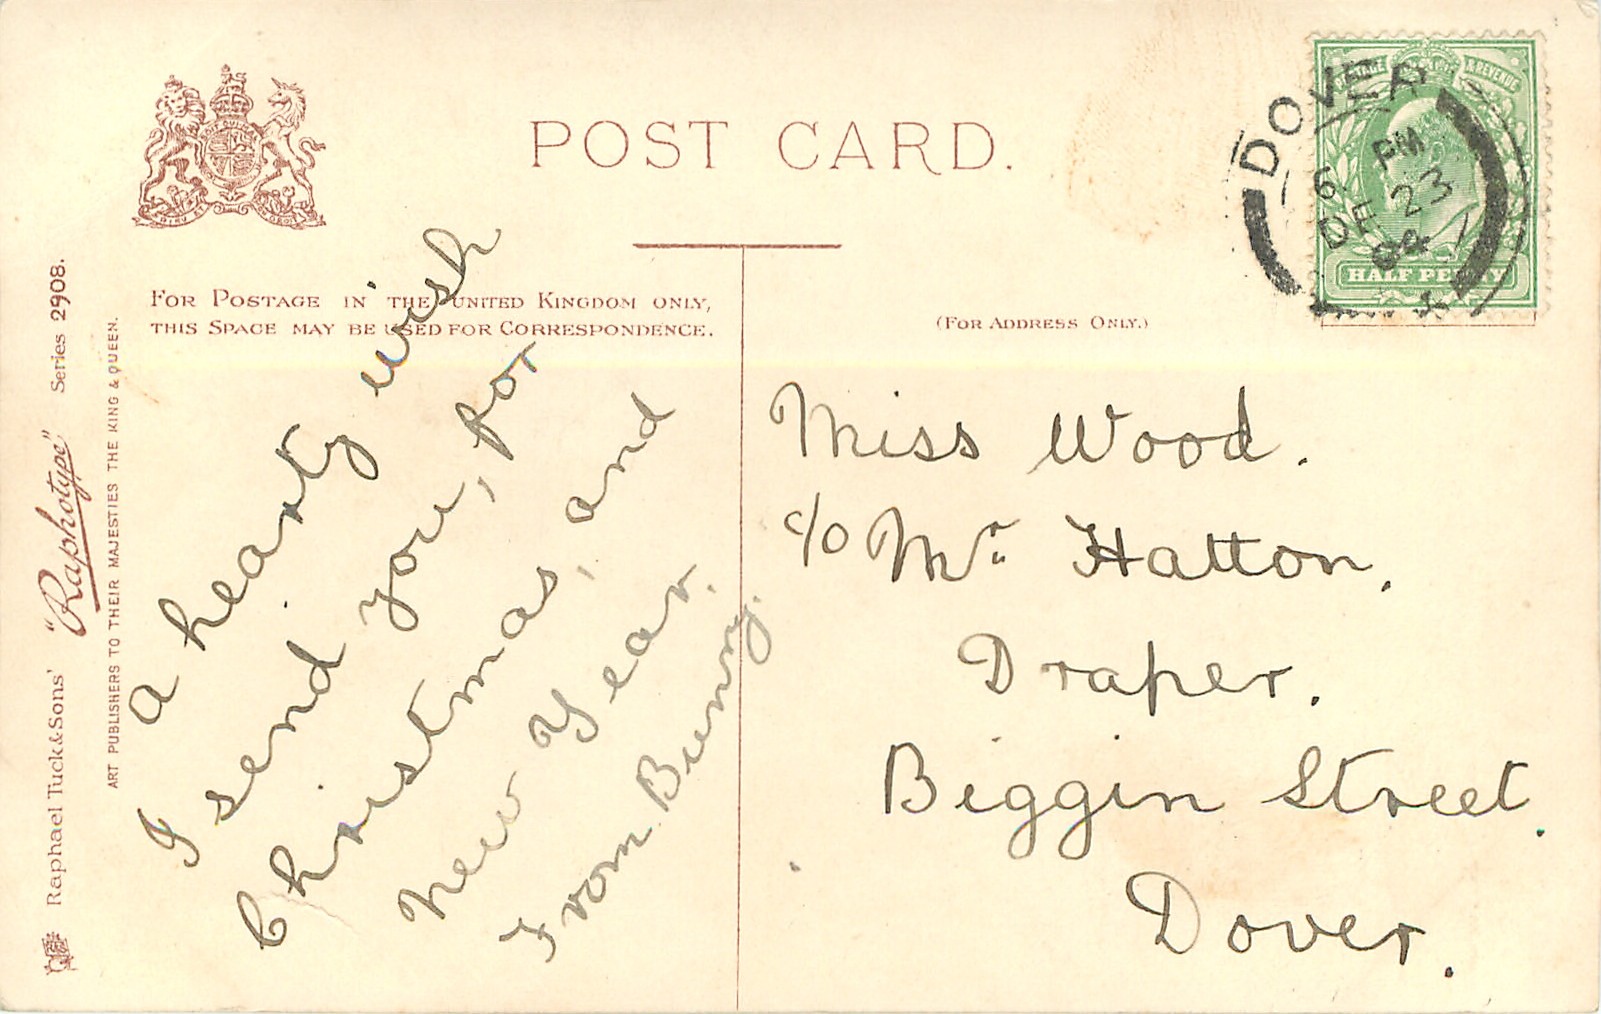 POST CARD.
FOR POSTAGE IN THE UNITED KINGDOM ONLY,
THIS SPACE MAY BE USED FOR CORRESPONDENCE.
(FOR ADDRESS ONLY.)
A hearty wish
I send you, for
Christmas, and
New Year.
From Bunny.
Miss Wood.
c/o Mr Hatton,
Draper,
Biggin Street.
Dover.
DOVER
6 PM
DE 23
04
POSTAGE & REVENUE
HALF PENNY
Raphael Tuck & Sons' "Raphotype" Series 2908.
ART PUBLISHERS TO THEIR MAJESTIES THE KING & QUEEN.